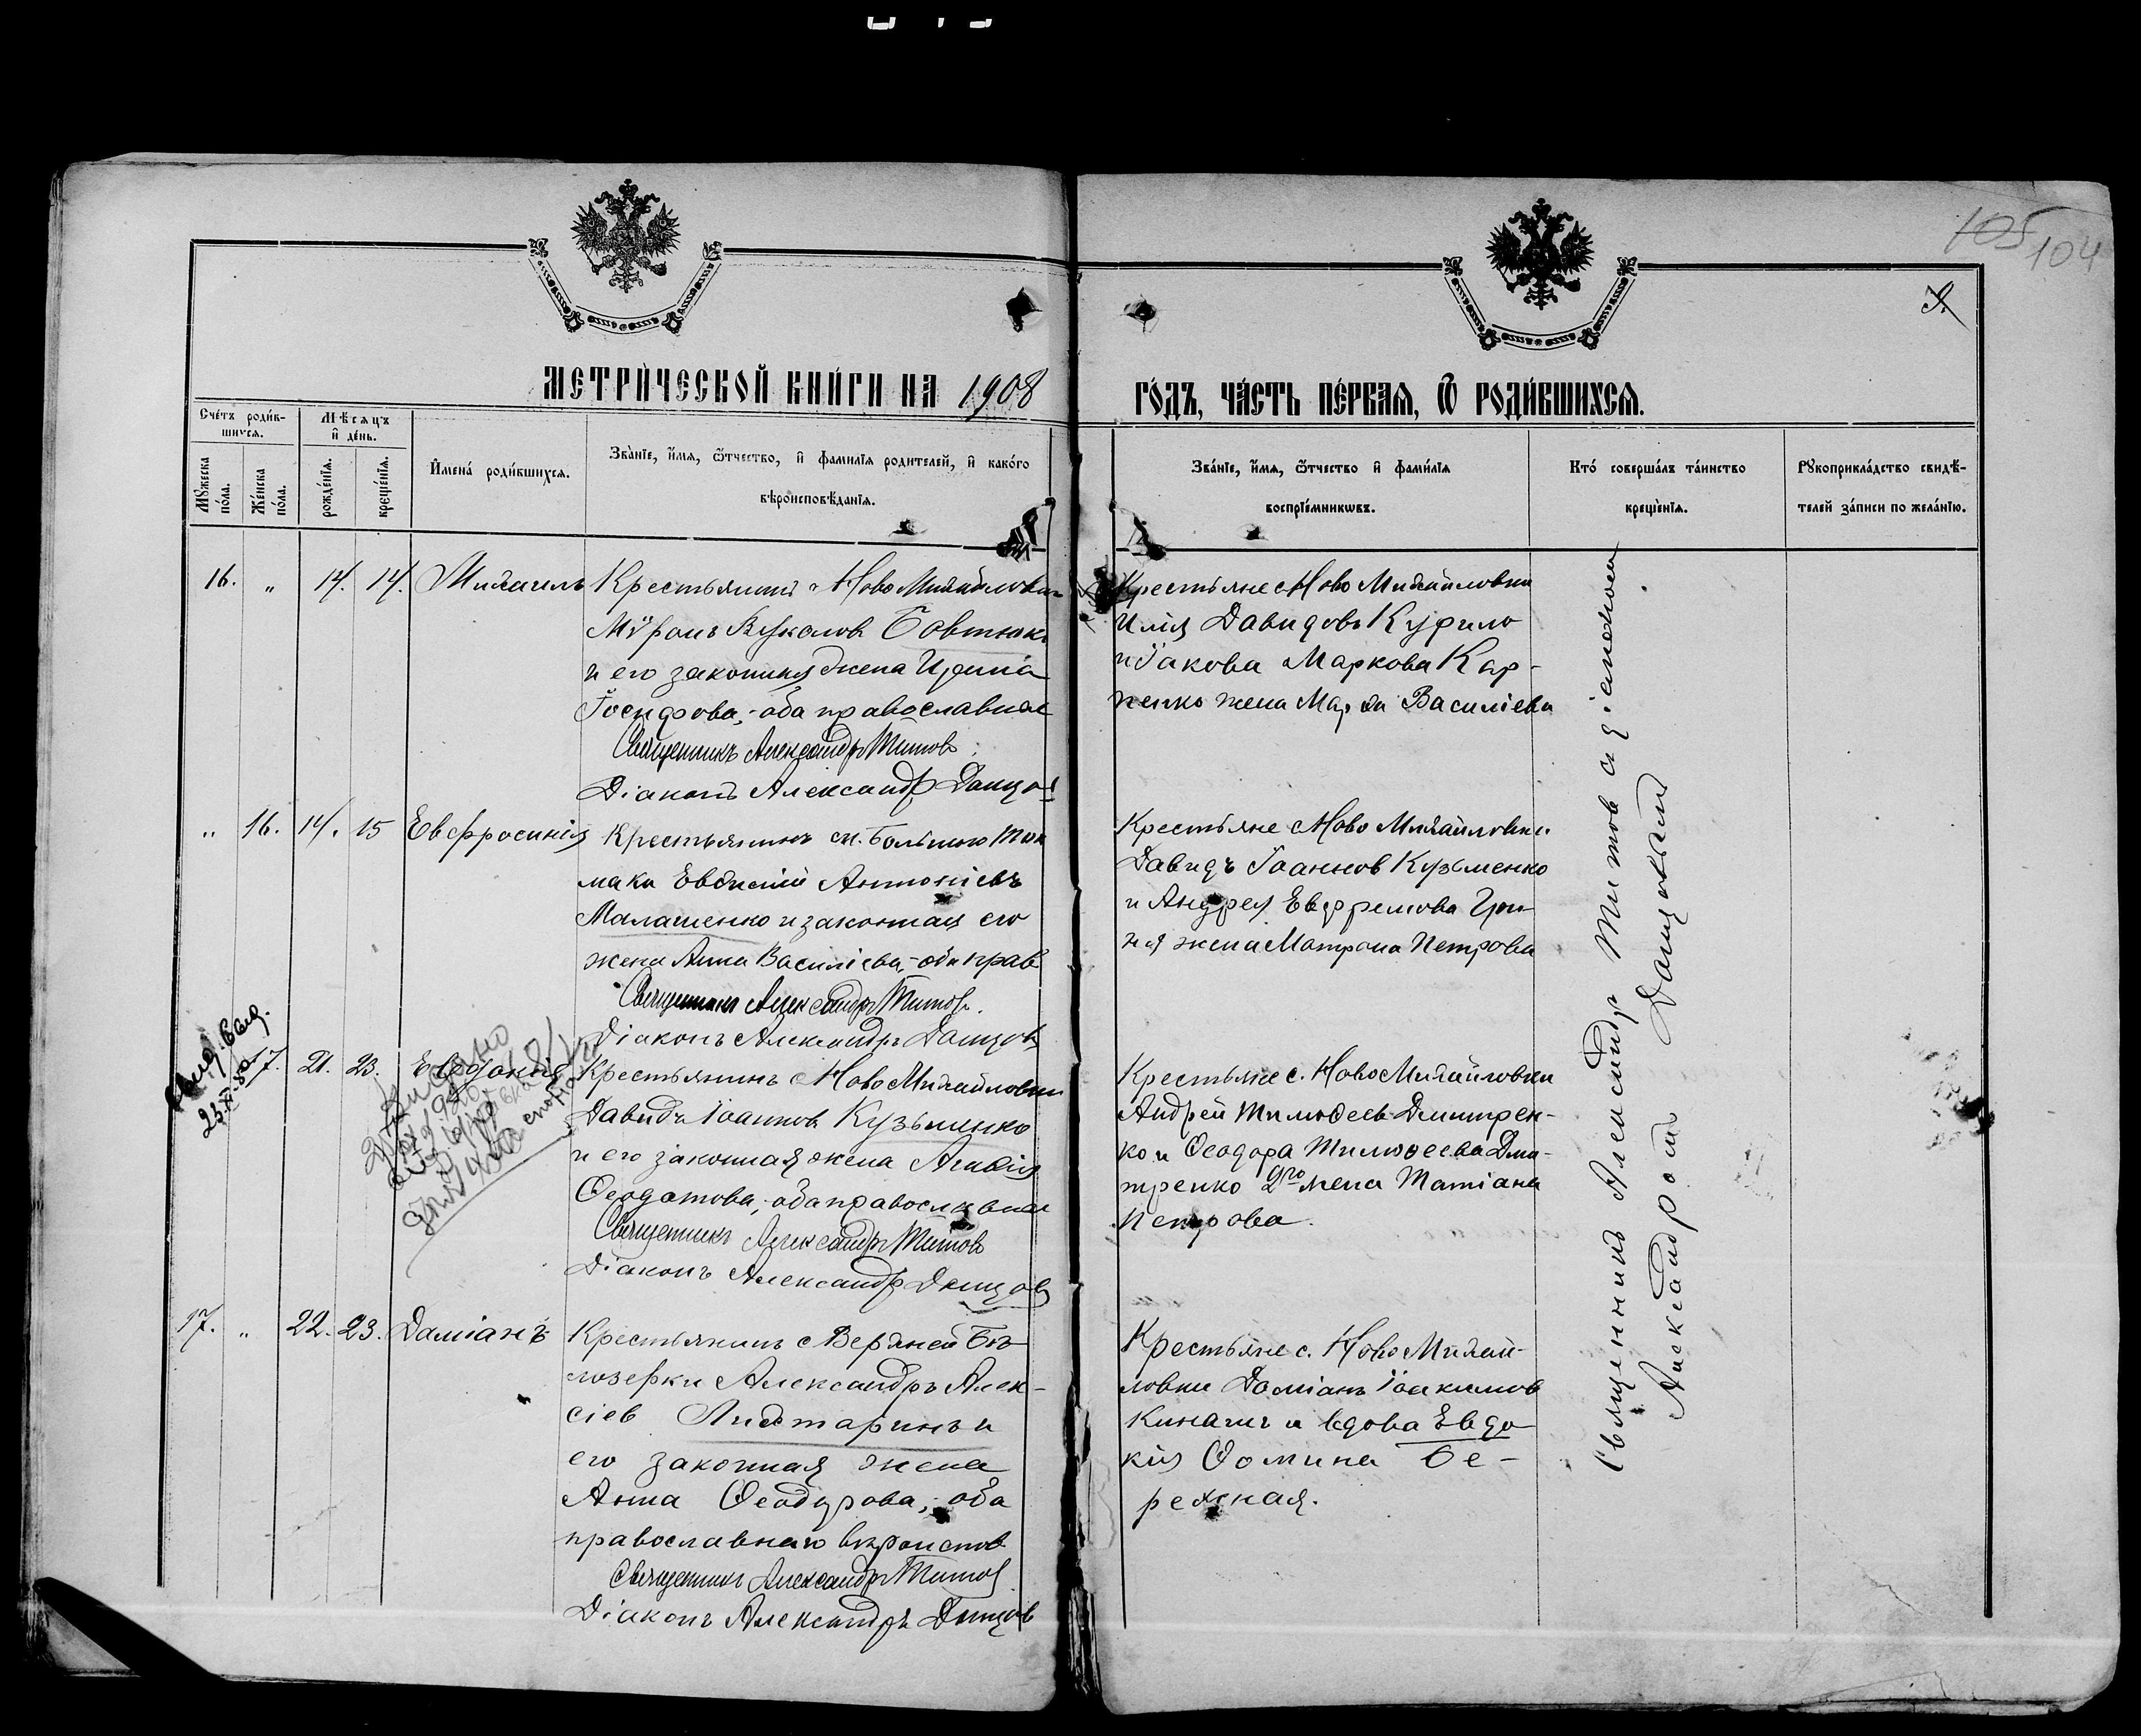 105 104
МЕТРИ́ЧЕСКОЙ КНИ́ГИ НА 1908
ГО́ДЪ, ЧА́СТЬ ПЕ́РВАЯ, Ѿ РОДИ́ВШИХСЯ.
Счетъ роди́в-
шихся.
Мѣсяцъ
и день.
Мꙋ́жеска
по́ла.
Же́нска
по́ла.
рожде́нїя.
креще́нїя.
Имена́ роди́вшихся.
Зва́нїе, и́мя, ѻ́тчество, и фамилїя родителей, и како́го
вѣроисповѣ́данїя.
Зва́нїе, и́мя, ѻ́тчество и фами́лїя
воспрїе́мникѡвъ.
Кто́ соверша́лъ та́инство
креще́нїя.
Рꙋкоприкла́дство свидѣ́-
телей за́писи по жела́нїю.
16. „ 14. 14. Михаилъ
Крестьянинъ с Ново Михайловки
Мѵронъ Вуколовъ Бовтюкъ
и его законная жена Ирина
Іосифова, оба православные
Священникъ Александръ Титовъ
Діаконъ Александръ Данцовъ
Крестьяне с Ново Михайловки
Илія Давидовъ Курило
и Іакова Маркова Кар-
пенко жена Марѳа Василіева
„ 16. 14. 15 Евфросинія
Крестьянинъ м. Большого Ток
мака Евѳимій Антоніевъ
Малашенко и законная его
жена Анна Василіева, оба прав
Священникъ Александръ Титовъ.
Діаконъ Александръ Данцовъ
Крестьяне с Ново Михайловки
Давидъ Іоанновъ Кузьменко
и Андрея Евфремова
жена Матрона Петрова
23.XI.50
17. 21. 23. Евдокія
Крестьянинъ с Ново Михайловки
Давидъ Іоанновъ Кузьменко
и его законная жена Агаѳія
Ѳеодотова, оба православные
Священникъ Александръ Титовъ
Діаконъ Александръ Данцовъ
Крестьяне с. Ново Михайловки
Андрей Тимоѳеевъ Дмитрен-
ко и Ѳеодора Тимоѳеева Дми-
тренко 2го жена Татіана
Петрова.
17. „ 22. 23. Даміанъ
Крестьянинъ с Верхней Бѣ-
лозерки Александръ Алек-
сіевъ и
его законная жена
Анна Ѳеодорова, оба
православнаго вѣроиспов
Священникъ Александръ Титовъ
Діаконъ Александръ Данцовъ
Крестьяне с. Ново Михай-
ловки Даміанъ Іоакимовъ
Кинашъ и вдова Евдо-
кія Ѳомина Бе-
режная.
Священникъ Александръ Титовъ съ діакономъ
Александромъ Данцовымъ